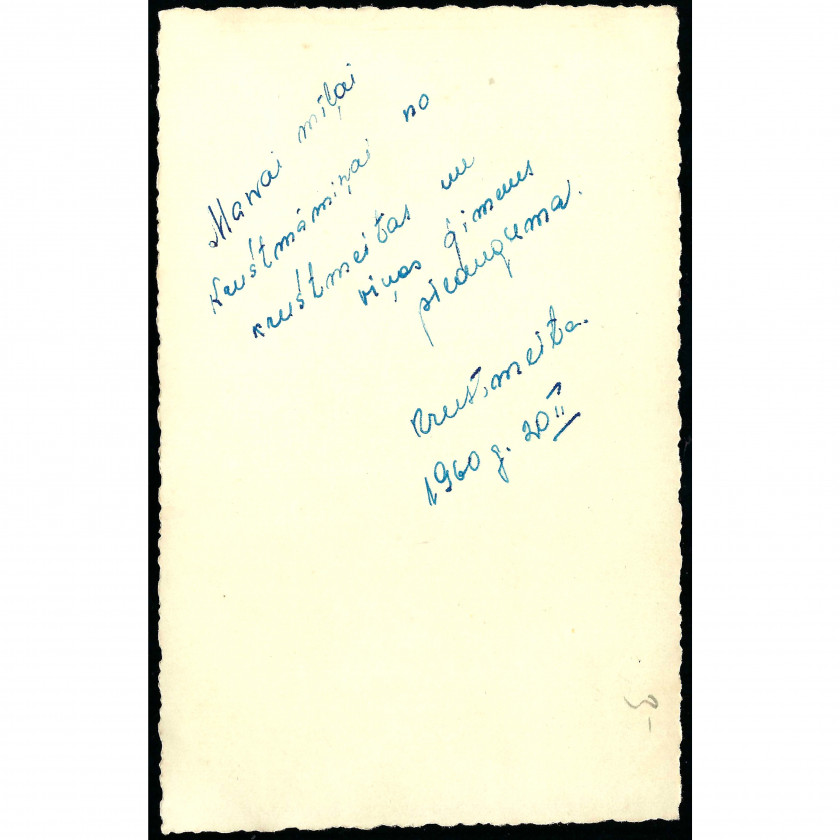 Manai mīļai
Krustmāmiņai no
krustmeitas un
viņas ģimenes
pieauguma.
Krustmeita.
1960 g. 20 II
3-